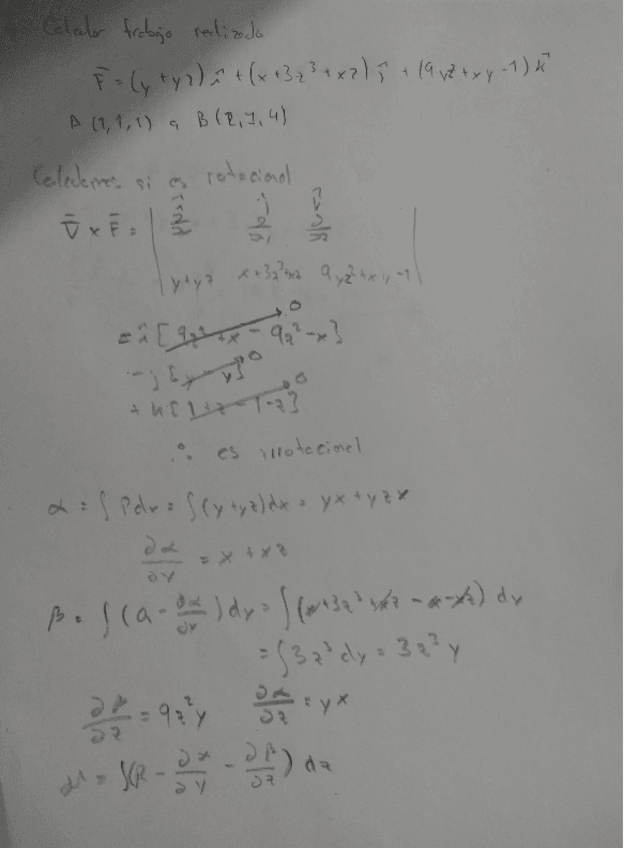 Calcular trabajo realizado
F̄ = (y + yz) î + (x + 3z³ + xz) ĵ + (9yz² + xy - 1) k̂
A (1,1,1) a B (2,1,4)
si es rotacional
∇̄ x F̄ = | î ĵ k̂
∂/∂x ∂/∂y ∂/∂z
y+yz x+3z³+xz 9yz²+xy-1 |
= î [9z² + x - 9z² - x] 0
- j [y - y] 0
+ k [1+z-1-z] 0
∴ es irrotacional
α = ∫ P dx = ∫ (y+yz) dx = yx + yzx
∂α/∂y = x + xz
β = ∫ (Q - ∂α/∂y) dy = ∫ (x+3z³+xz - x - xz) dy
= ∫ 3z³ dy = 3z³ y
∂β/∂z = 9z² y ∂α/∂z = yx
= ∫ (R - ∂α/∂y - ∂β/∂z) dz